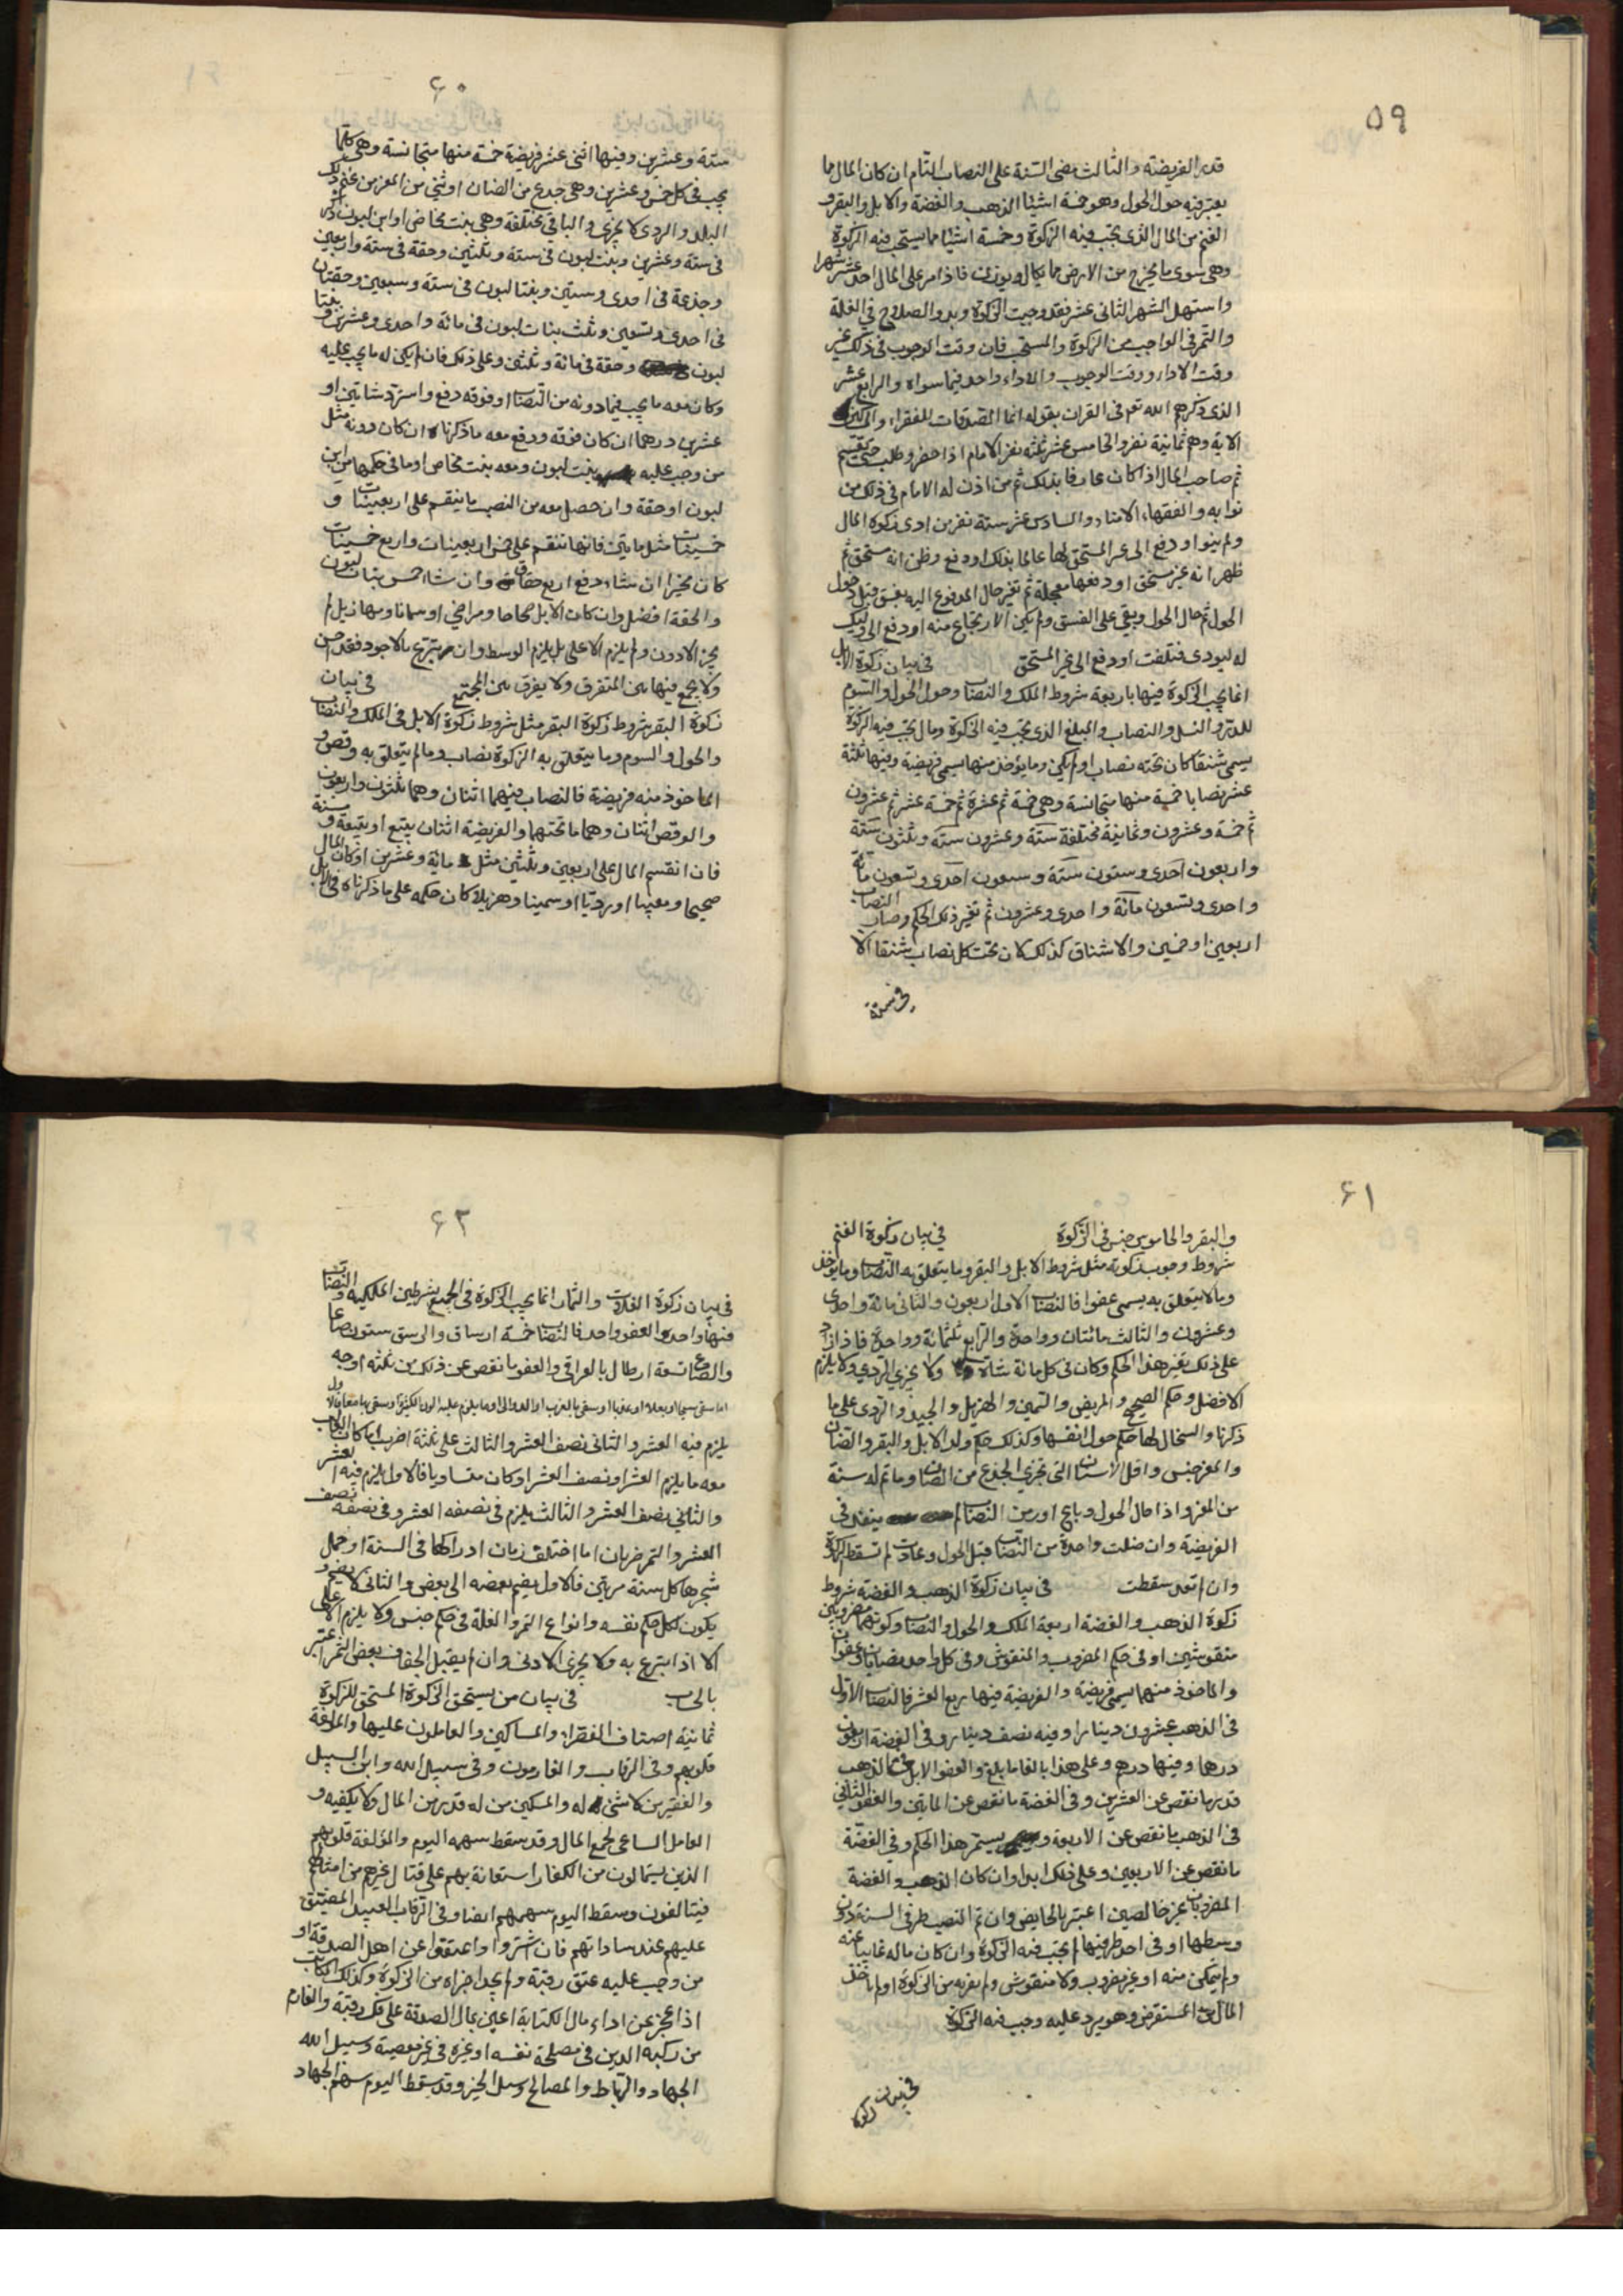 ٥٩
قدر الفريضة والثالث مضى السنة على النصاب التام ان كان المال ما
يعتبر فيه حول الحول وهو خمسة اشيئا الذهب والفضة والابل والبقر و
الغنم من المال الذى يجب فيه الزكوة وخمسة اشيئا مما يستحب فيه الزكوة
وهى سوى ما يخرج من الارض مما يكال ويوزن فاذا مر على المال احد عشر شهرا
واستهل الشهر الثانى عشر فقد وجبت الزكوة وبدو الصلاح في الغلة
والتمر فى الواجب من الزكوة والمستحب فان وقت الوجوب فى ذلك غير
وقت الاداء ووقت الوجوب والاداء واحد فيما سواه والرابع عشر
الذى ذكرهم الله تعم فى القران بقوله انما الصدقات للفقراء والمساكين
الاية وهم ثمانية نفر والخامس عشر ثلثه نفر الامام اذا حضر وطلب حتى يقسم
ثم صاحب المال اذا كان عارفا بذلك ثم من اذن له الامام فى ذلك من
نوابه والفقهاء الامناء والسادس عشر ستة نفر من ادى زكوة المال
ولم ينو او دفع الى غير المستحق لها عالما بذلك او دفع وظن انه مستحق ثم
ظهر انه غير مستحق او دفعها معجلة ثم تغير حال المدفوع اليه بفسق قبل حول
الحول ثم حال الحول وبقي على الفسق ولم يكن الارتجاع منه او دفع الى وكيل
له ليودى فتلفت او دفع الى غير المستحق فى بيان زكوة الابل
انما يجب الزكوة فيها باربعة شروط الملك والنصاب وحول الحول والسوم
للدر والنسل والنصاب والمبلغ الذى يجب فيه الزكوة ومال يجب فيه الزكوة
يسمى شنقا كان تحته نصاب او لم يكن وما يؤخذ منها يسمى فريضة وفيها ثلثة
عشر نصابا خمسة منها متجانسة وهى خمسة ثم عشرة ثم خمسة عشر ثم عشرون
ثم خمسة وعشرون وثمانية مختلفة ستة وعشرون ستة وثلثون ستة
واربعون احدى وستون ستة وسبعون احدى وتسعون مائة
واحدى وتسعون مائة واحدى وعشرون ثم تغير ذلك الحكم وصار النصاب
اربعين او خمسين والاشناق كذلك لان تحت كل نصاب شنقا الا
فى ستة
٦٠
ستة وعشرين وفيها اثنى عشر فريضة خمسة منها متجانسة وهى كلما
يجب فى كل خمس وعشرين وهى جذع من الضان او ثنى من المعز من غنم ذلك
البلد والردى لا يجزى والباقى مختلفة وهى بنت مخاض او ابن لبون ذكر
فى ستة وعشرين وبنت لبون فى ستة وثلثين وحقة فى ستة واربعين
وجذعة فى احدى وستين وبنتا لبون فى ستة وسبعين وحقتان
فى احدى وتسعين وثلث بنات لبون فى مائة واحدى وعشرين وبنتا
لبون وحقة فى مائة وثلثين وعلى ذلك فان لم يكن له ما يجب عليه
وكان معه ما يجب فيما دونه من النصاب او فوقه دفع واسترد شاتين او
عشرين درهما ان كان فوقه ودفع معه ما ذكرناه ان كان دونه مثل
من وجب عليه بنت لبون ومعه بنت مخاض او ما فى حكمها من ابن
لبون او حقة وان حصل معه من النصب ما ينقسم على اربعينات و
خمسينات مثل مايتين فانها تنقسم على خمس اربعينات واربع خمسينات
كان مخيرا ان شاء دفع اربع حقاق وان شاء خمس بنات لبون
والحقة افضل وان كان الابل صحاحا ومراضى او سمانا ومهازيل لم
يجز الادون ولم يلزم الاعلى بل يلزم الوسط وان تبرع بالاجود فقد احسن
ولا يجمع فيها بين المتفرق ولا يفرق بين المجتمع فى بيان
زكوة البقر شروط زكوة البقر مثل شروط زكوة الابل فى الملك والنصاب
والحول والسوم وما يتعلق به الزكوة نصاب وما لم يتعلق به وقص و
الماخوذ منه فريضة فالنصاب فيهما اثنان وهما ثلثون واربعون
والوقص اثنان وهما ما تحتهما والفريضة اثنان تبيع او تبيعة ومسنة
فان انقسم المال على اربعين وثلثين مثل مائة وعشرين او كان المال
صحيحا ومعيبا او رديا او سمينا وهزيلا كان حكمه على ما ذكرناه فى الابل
٦١
والبقر والجاموس جنس فى الزكوة فى بيان زكوة الغنم
شروط وجوب زكوته مثل شروط الابل والبقر وما يتعلق به النصاب وما يؤخذ
وما لا يتعلق به يسمى عفوا فالنصاب الاول اربعون والثانى مائة واحدى
وعشرون والثالث مائتان وواحدة والرابع ثلثمائة وواحدة فاذا زاد
على ذلك تغير هذا الحكم وكان فى كل مائة شاة ولا يجزي الردي ولا يلزم
الافضل وحكم الصحيح والمريض والسمين والهزيل والجيد والردى على ما
ذكرنا والسخال لها حكم حول انفسها وكذلك حكم ولد الابل والبقر والضان
والمعز جنس واقل الاسنان التى تجزى الجذع من الضان وما تم له سنة
من المعز واذا حال الحول وباع او رمن النصاب ينفذ فى
الفريضة وان ضلت واحدة من النصاب قبل الحول وعادت لم تسقط الزكوة
وان لم تعد سقطت فى بيان زكوة الذهب والفضة شروط
زكوة الذهب والفضة اربعة الملك والحول والنصاب وكونهما مضروبين
منقوشين او فى حكم المضروب والمنقوش وفى كل واحد نصابان وعفوان
والماخوذ منهما يسمى فريضة والفريضة فيها ربع العشر فالنصاب الاول
فى الذهب عشرون دينارا وفيه نصف دينار وفى الفضة اربعون
درهما وفيها درهم وعلى هذا بالغا ما بلغ والعفو الاول فى الذهب
قدر ما نقص عن العشرين وفى الفضة ما نقص عن المايتين والعفو الثانى
فى الذهب ما نقص عن الاربعة ويستمر هذا الحكم وفى الفضة
ما نقص عن الاربعين وعلى ذلك ابدا وان كان الذهب والفضة
المضروبان غير خالصين اعتبر بالخالص وان تم النصيب طرفى السنة دون
وسطها او فى احد طرفيها لم يجب فيه الزكوة وان كان ماله غايبا عنه
ولم يتمكن منه او غير مضروب ولا منقوش ولم يفر به من الزكوة او لم ياخذ
المال المستقرض وهو يرد عليه وجب فيه الزكوة
فى بيان زكوة
٦٢
فى بيان زكوة الغلات والثمار انما يجب الزكوة فى الجميع بشرطين الملكيه والنصاب
فيها واحد والعفو واحد فالنصاب خمسة اوساق والوسق ستون صاعا
والصاع تسعة ارطال بالعراقى والعفو ما نقص عن ذلك من ثلثه اوجه
يلزم فيه العشر والثانى نصف العشر والثالث على ثلثة اضرب
معه ما يلزم العشر او نصف العشر او كان متساويا فالاول يلزم فيه العشر
والثانى نصف العشر والثالث يلزم فى نصفه العشر وفى نصفه نصف
العشر والتمر ضربان اما اختلف زمان ادراكها فى السنة او حمل
شجرها كل سنة مرتين فالاول يضم بعضه الى بعض والثانى لا يضم و
يكون لكل حكم نفسه وانواع التمر والغلة فى حكم جنس ولا يلزم الاعلى
الا اذا تبرع به ولا يجزى الادنى وان لم يقبل الجفاف بعض التمر اعتبر
فى بيان من يستحق الزكوة المستحق للزكوة
ثمانية اصناف الفقراء والمساكين والعاملون عليها والمؤلفة
قلوبهم وفى الرقاب والغارمون وفى سبيل الله وابن السبيل
والفقير من لا شئ له والمسكين من له قدر من المال ولا يكفيه و
العامل الساعى لجمع المال وقد سقط سهمه اليوم والمؤلفة قلوبهم
الذين يستمالون من الكفار استعانة بهم على قتال غيرهم من امثالهم
فيتالفون وسقط اليوم سهمهم ايضا وفى الرقاب العبيد المضيق
عليهم عند ساداتهم فان اشتروا واعتقوا عن اهل الصدقة او
من وجب عليه عتق رقبة ولم يجد اجزاه من الزكوة وكذلك المكاتب
اذا عجز عن اداء مال الكتابة اعين بمال الصدقة على فك رقبته والغارم
من ركبه الدين فى مصلحة نفسه او غيره فى غير معصية وسبيل الله
الجهاد والرباط والمصالح وسبل الخير وقد سقط اليوم سهم الجهاد